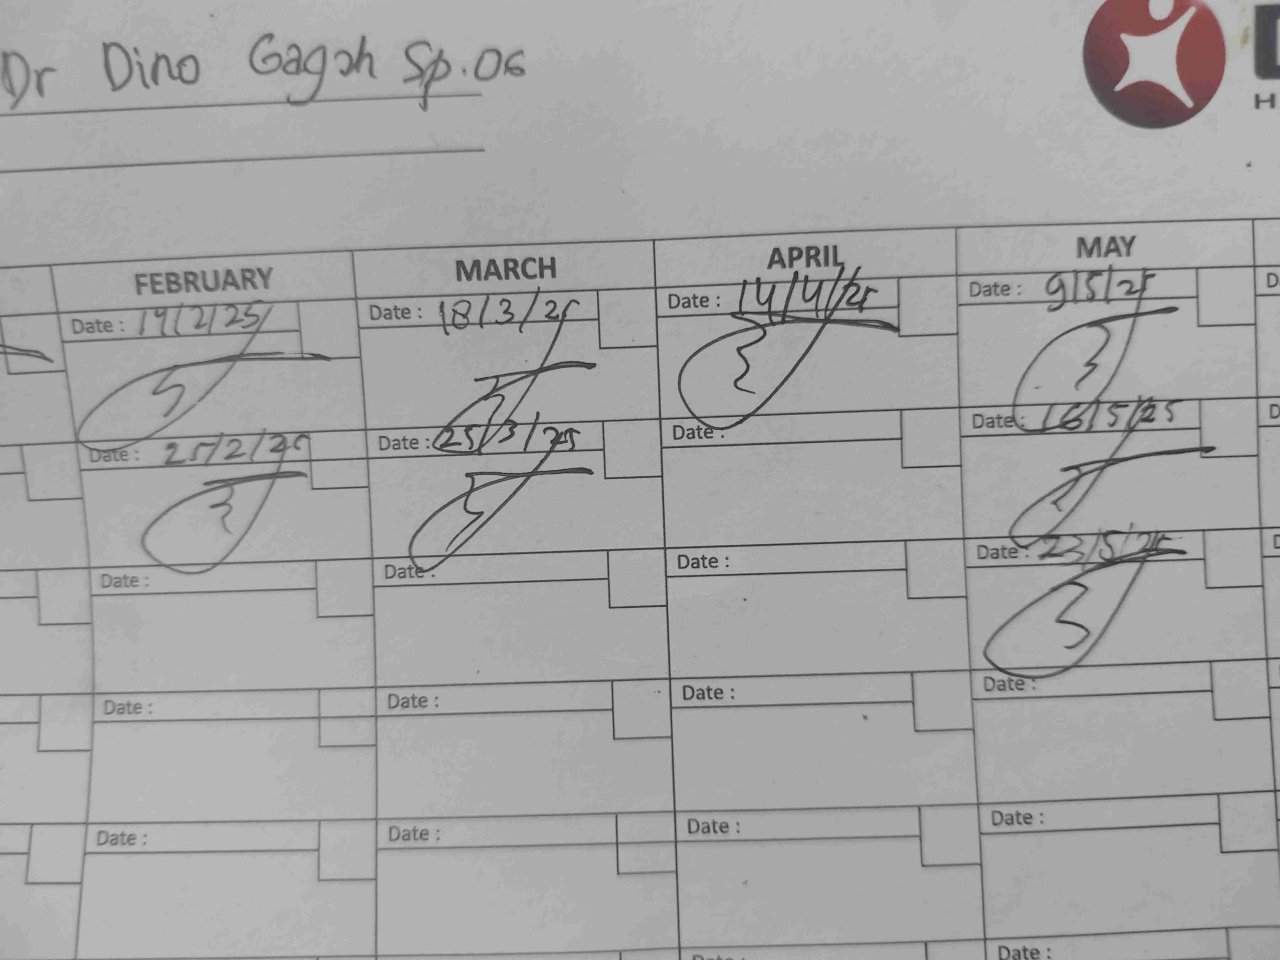 Dr Dino Gagah Sp.OG
H
FEBRUARY MARCH APRIL MAY
Date : 19/2/25 Date : 18/3/25 Date : 14/4/25 Date : 9/5/25 D
Date : 25/2/25 Date : 25/3/25 Date : Date : 16/5/25
Date : Date : Date : Date : 23/5/25 D
Date : Date : Date : Date :
Date : Date : Date : Date :
Date : Date :